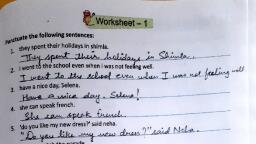 Worksheet – 1
Punctuate the following sentences:
1. they spent their holidays in shimla.
They spent their holidays in Shimla.
2. i went to the school even when i was not feeling well.
I went to the school even when I was not feeling well
3. have a nice day, selena.
Have a nice day, Selena!
4. she can speak french.
She can speak French.
5. 'do you like my new dress?' said neha.
"Do you like my new dress?" said Neha.